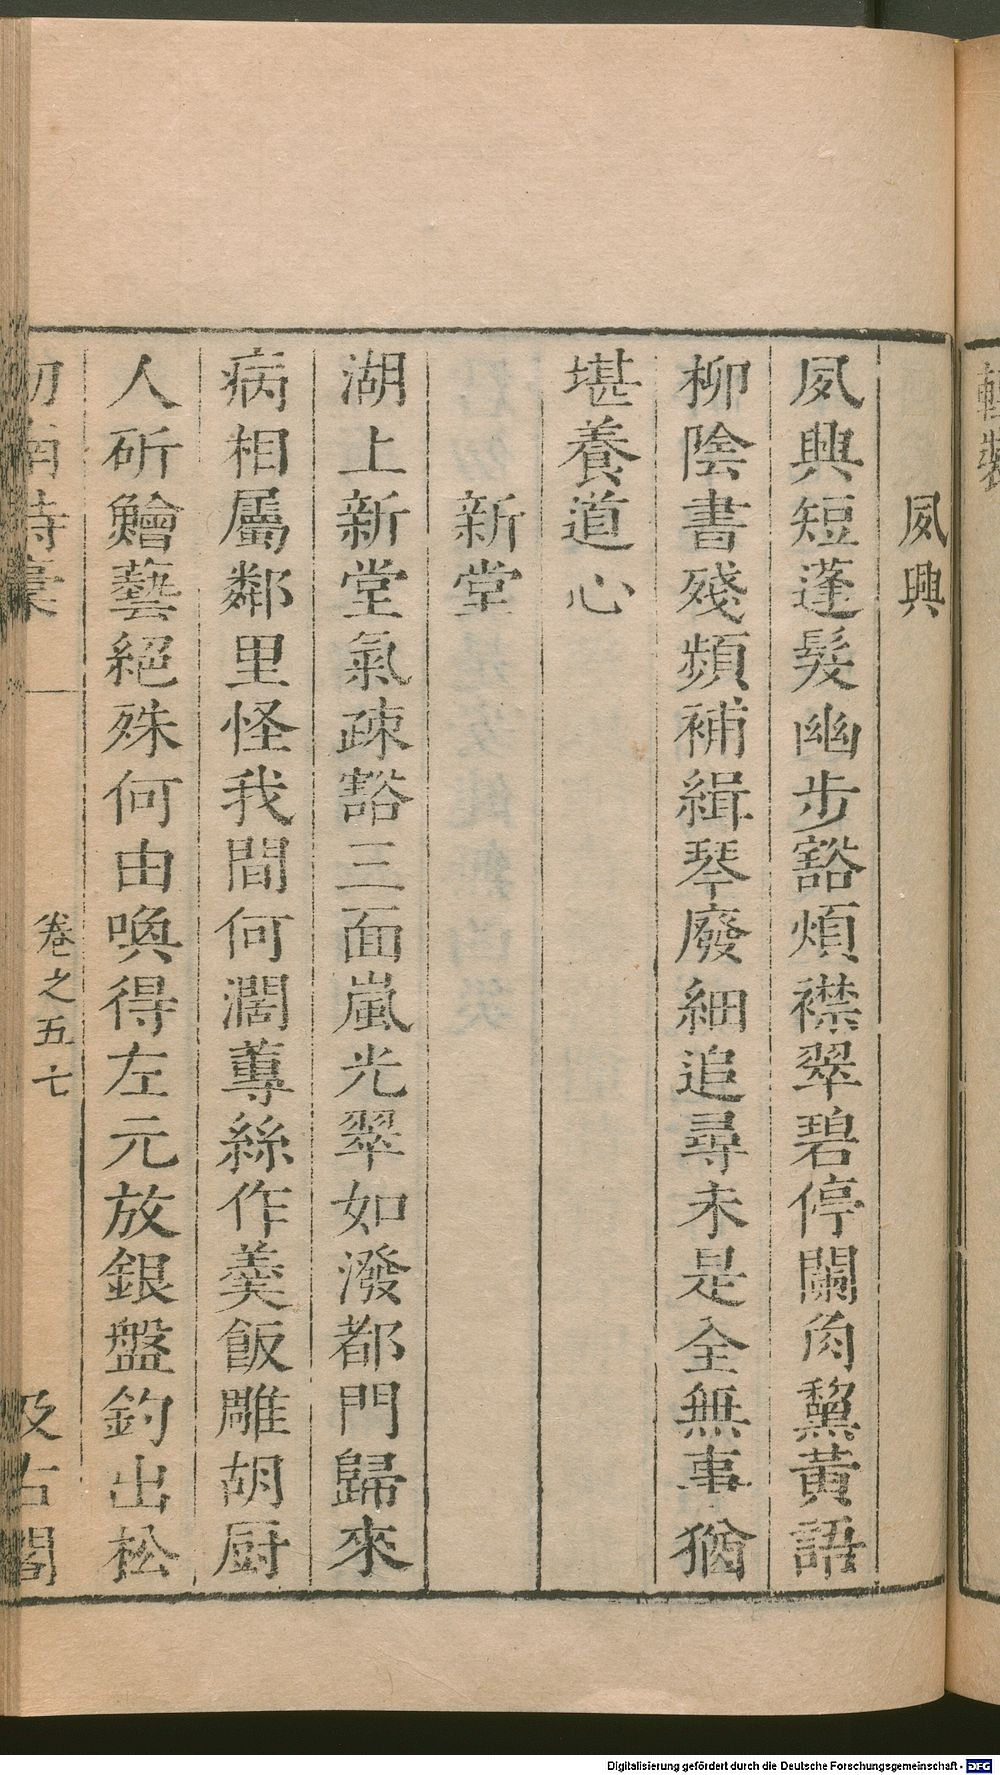 夙興
夙興短蓬髮幽步豁煩襟翠碧停闌角黧黃語
柳陰書殘頻補緝琴廢細追尋未是全無事猶
堪養道心
新堂
湖上新堂氣疎豁三面嵐光翠如潑都門歸來
病相屬鄰里怪我間何濶蓴絲作羹飯雕胡厨
人斫鱠藝絕殊何由喚得左元放銀盤釣出松
劒南詩稾
卷之五七
汲古閣
Digitalisierung gefördert durch die Deutsche Forschungsgemeinschaft - DFG